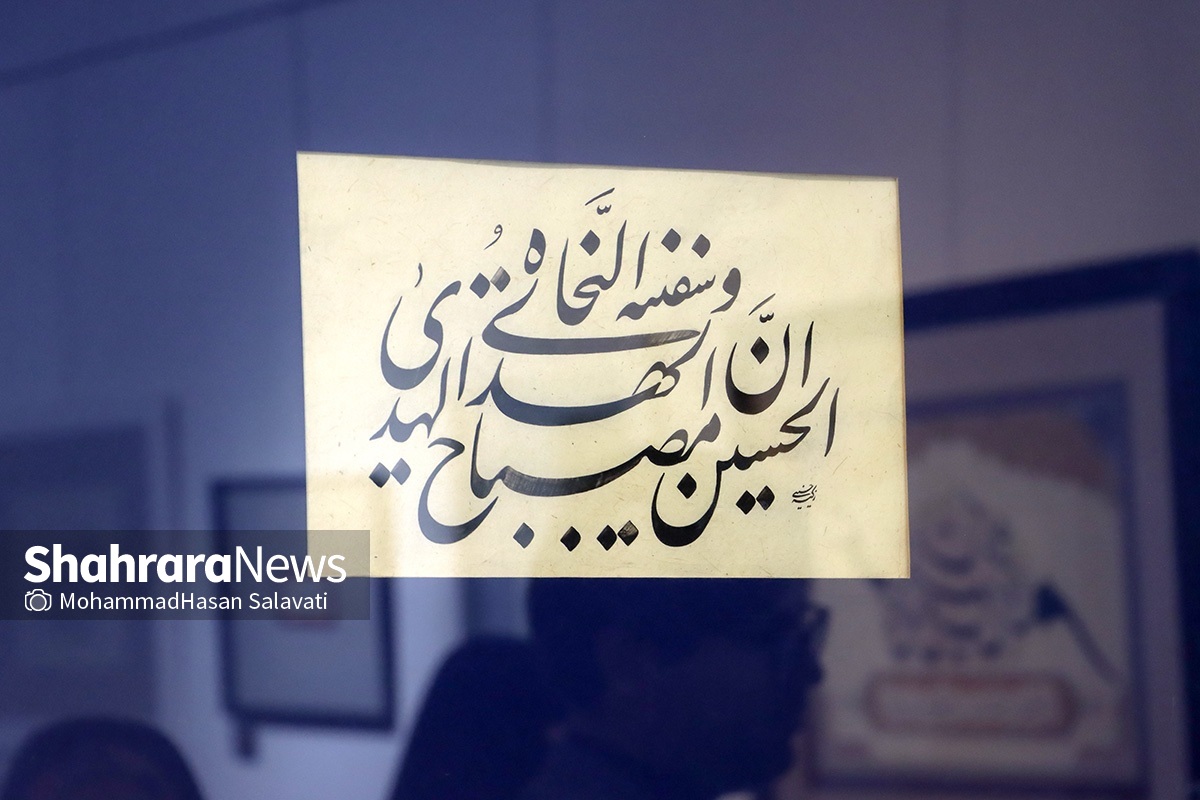 انّ
الحسین مصباح الهدی
وسفینه النَّجاه
ShahraraNews
MohammadHasan Salavati